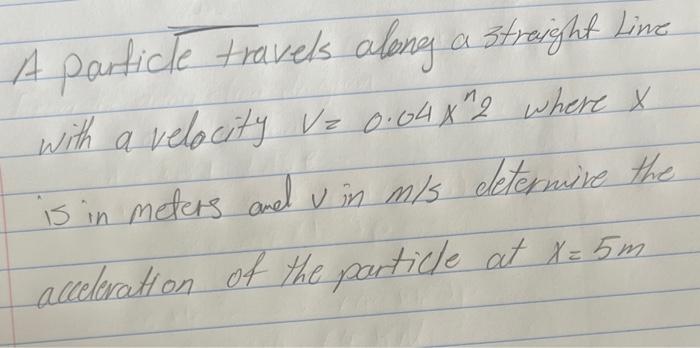 A particle travels along a straight Line
with a velocity V= 0.04 x^2 where x
is in meters and v in m/s determine the
acceleration of the particle at x= 5m